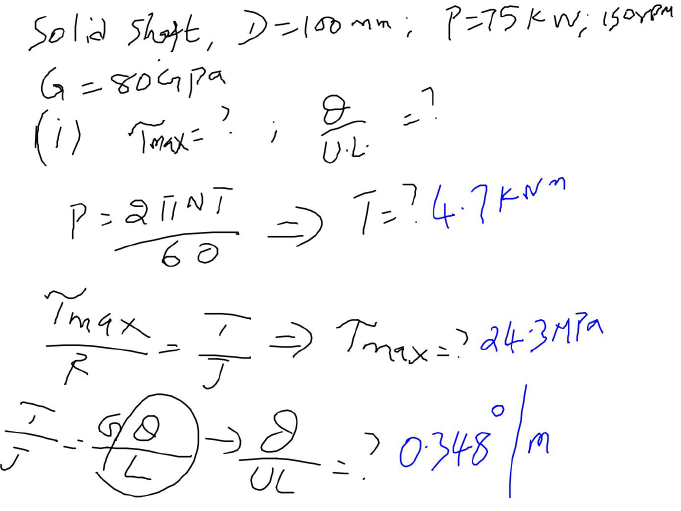 Solid Shaft, D=100mm; P=75KW; 150rpm
G=80GPa
(i) τmax=? ; θ/U.L. =?
P = 2πNT/60 => T=? 4.7KNm
τmax/R = T/J => τmax=? 24.3MPa
T/J = Gθ/L → θ/UL =? 0.348°/m